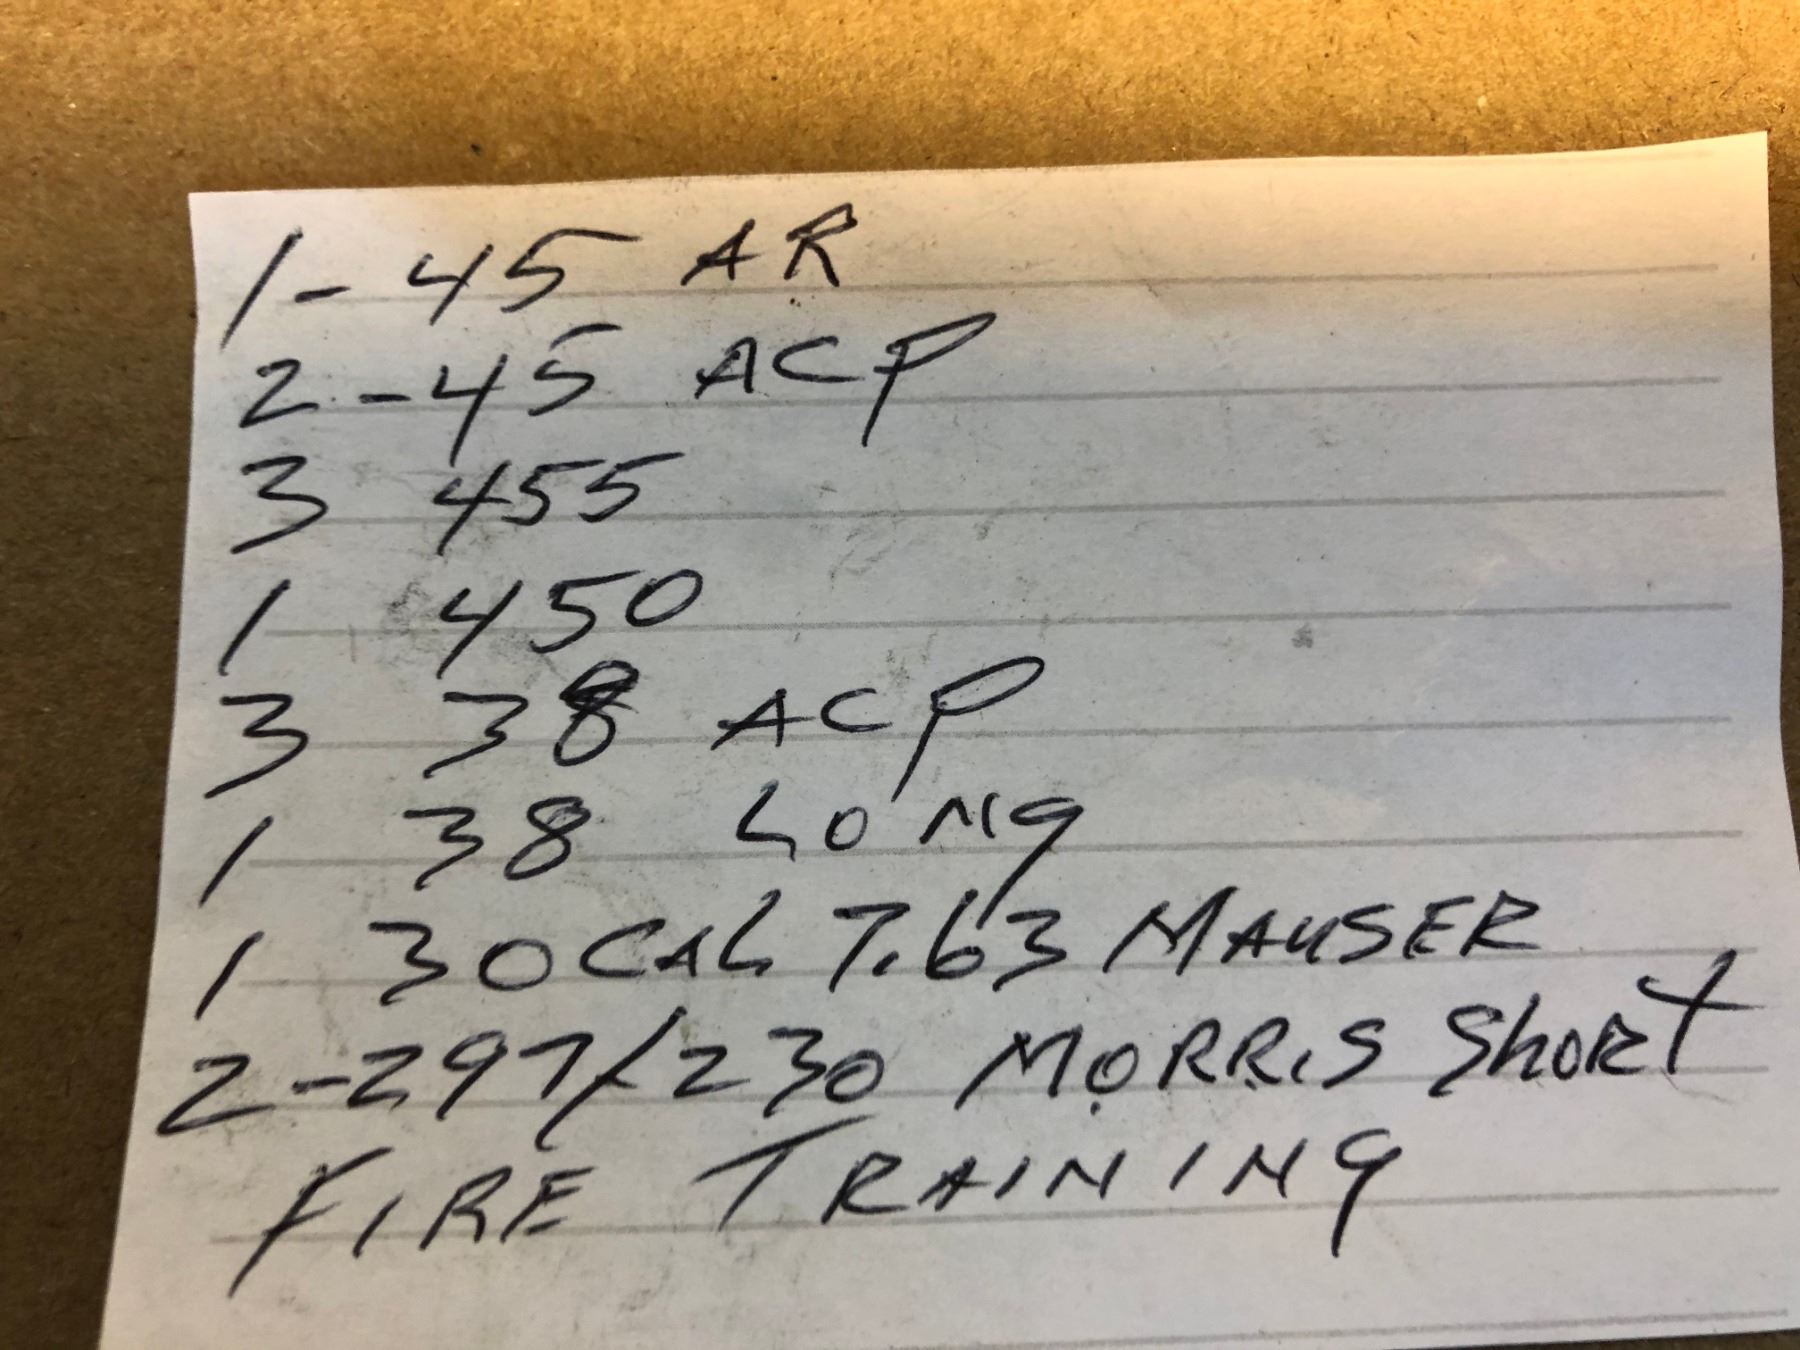 1- 45 AR
2-45 ACP
3 455
1 450
3 38 ACP
1 38 LONG
1 30 CAL 7.63 MAUSER
2-297/230 MORRIS ShORT
FIRE TRAINING